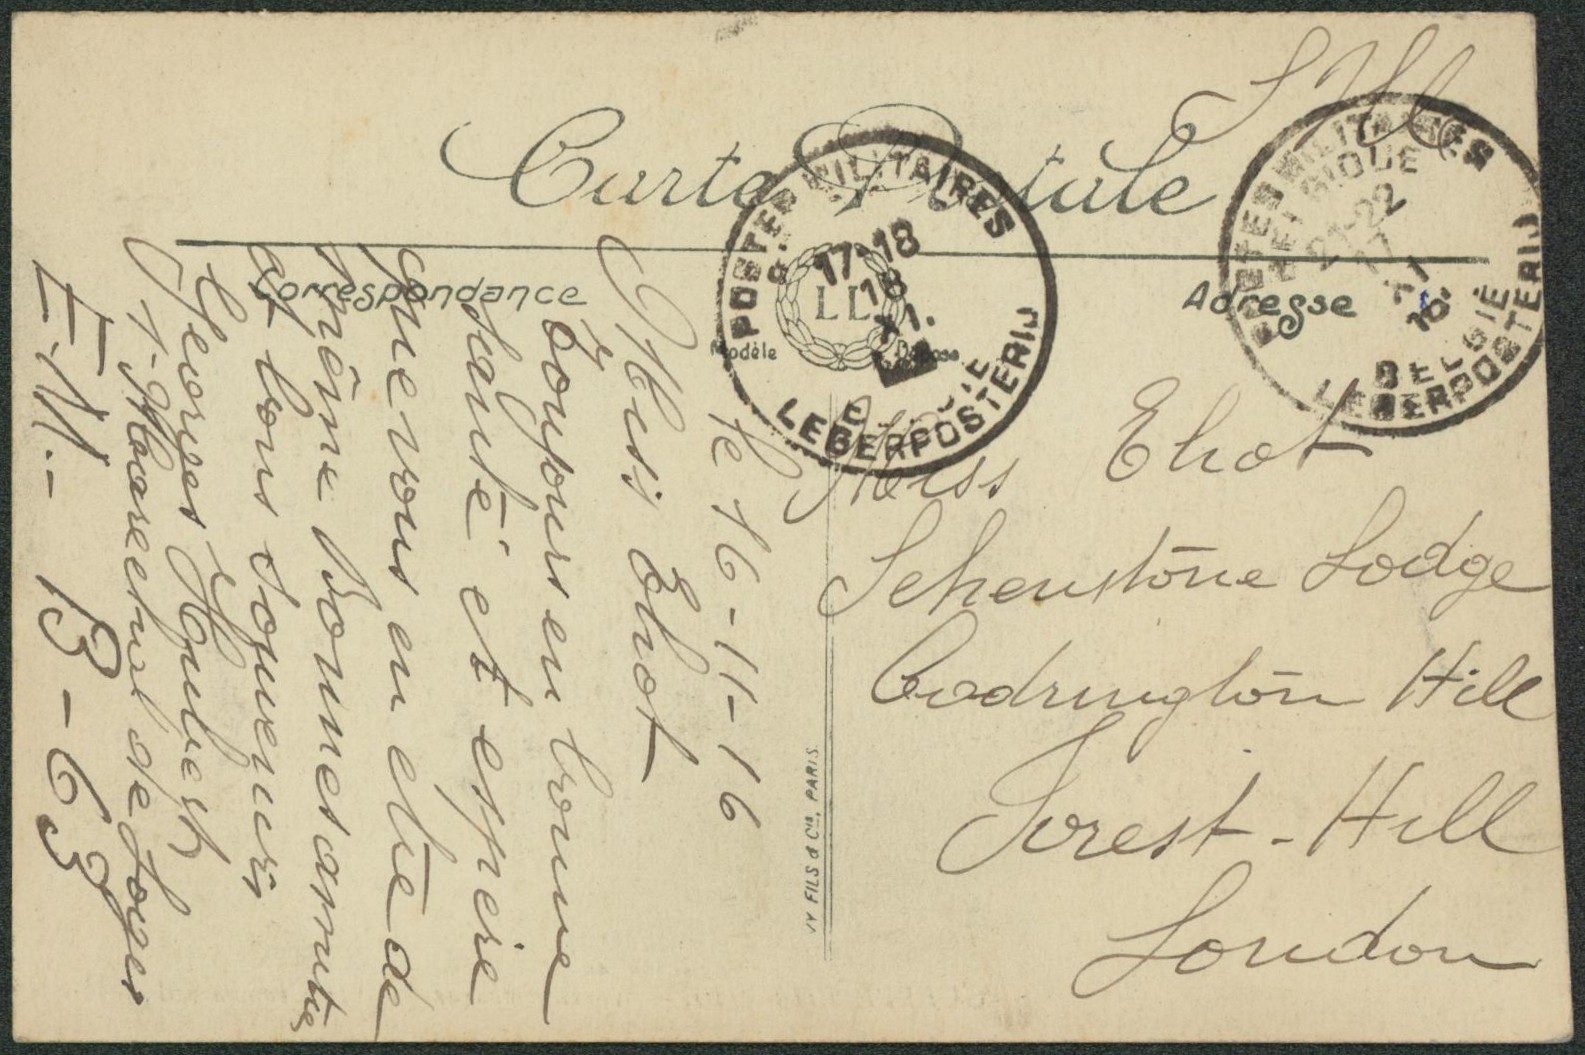 S M
Carte Postale
Correspondance
Adresse
LL
Modèle
Déposé
POSTES MILITAIRES
17-18
18
XI.
LEGERPOSTERIJ
POSTES MILITAIRES
BELGIQUE
21-22
17
XI
16.
BELGIË
LEGERPOSTERIJ
le 16-11-16
Miss Eliot
Toujours en bonne
santé et espère
que vous en etre de
même Bonnes amitiés
et bons souvenirs
Georges Houbest
1. Marechal de Loges
E.M. - B-63
Miss Eliot
Schenstone Lodge
Codrington Hill
Forest-Hill
London
FILS & Cie, PARIS.